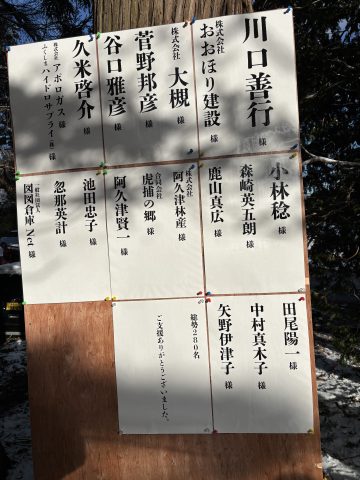 川口善行 様
株式会社 おおほり建設 様
株式会社 大槻 様
菅野邦彦 様
谷口雅彦 様
久米啓介 様
株式会社 アポロガス 様
ふくしま ハイドロサプライ(株) 様
小林稔 様
森崎英五朗 様
鹿山真広 様
株式会社 阿久津林産 様
合同会社 虎捕の郷 様
阿久津賢一 様
池田忠子 様
忽那英計 様
一般社団法人 図図倉庫Net 様
田尾陽一 様
中村真木子 様
矢野伊津子 様
総勢280名
ご支援ありがとうございました。